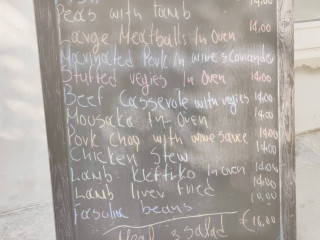 Peas with lamb 14.00
Large Meatballs In Oven 14.00
Marinated Pork In wine & Coriander
Stuffed vegies In Oven 14.00
Beef Casserole with vegies 14.00
Mousaka In Oven 14.00
Pork Chop with wine sauce 14.00
Chicken Stew 14.00
Lamb Kleftiko In oven 14.00
Lamb liver fried 14.00
Fasolia beans
Meal & salad €16.00